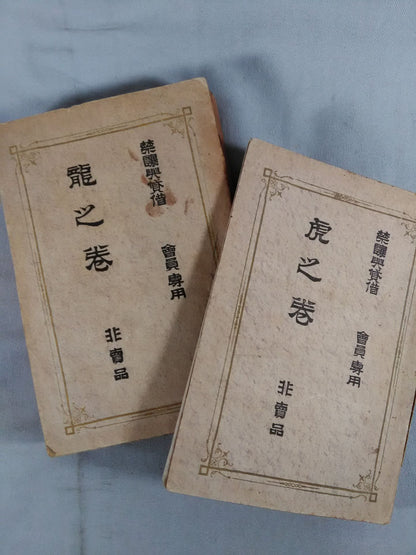 禁讓與貸借 會員專用
龍之卷 非賣品
禁讓與貸借 會員專用
虎之卷 非賣品